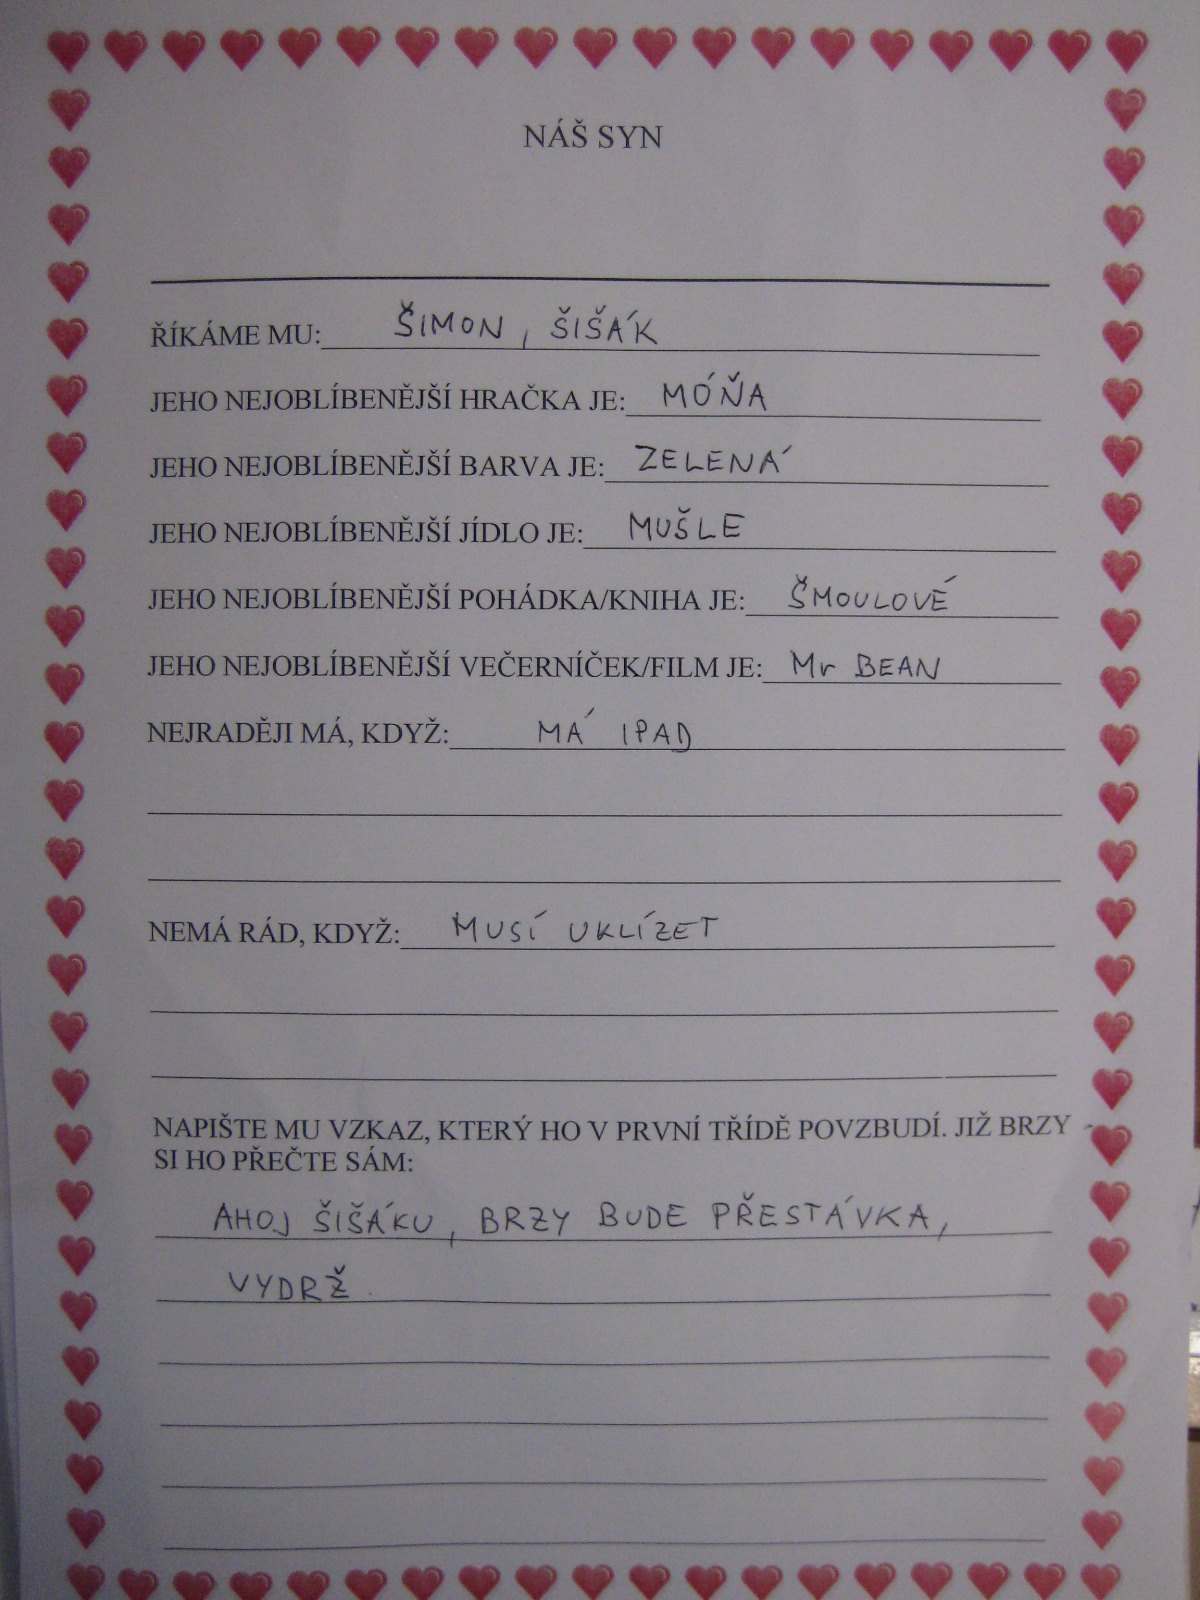 NÁŠ SYN
ŘÍKÁME MU: ŠIMON, ŠIŠÁK
JEHO NEJOBLÍBENĚJŠÍ HRAČKA JE: MÓŇA
JEHO NEJOBLÍBENĚJŠÍ BARVA JE: ZELENÁ
JEHO NEJOBLÍBENĚJŠÍ JÍDLO JE: MUŠLE
JEHO NEJOBLÍBENĚJŠÍ POHÁDKA/KNIHA JE: ŠMOULOVÉ
JEHO NEJOBLÍBENĚJŠÍ VEČERNÍČEK/FILM JE: Mr BEAN
NEJRADĚJI MÁ, KDYŽ: MÁ IPAD
NEMÁ RÁD, KDYŽ: MUSÍ UKLÍZET
NAPIŠTE MU VZKAZ, KTERÝ HO V PRVNÍ TŘÍDĚ POVZBUDÍ. JIŽ BRZY
SI HO PŘEČTE SÁM:
AHOJ ŠIŠÁKU, BRZY BUDE PŘESTÁVKA,
VYDRŽ.